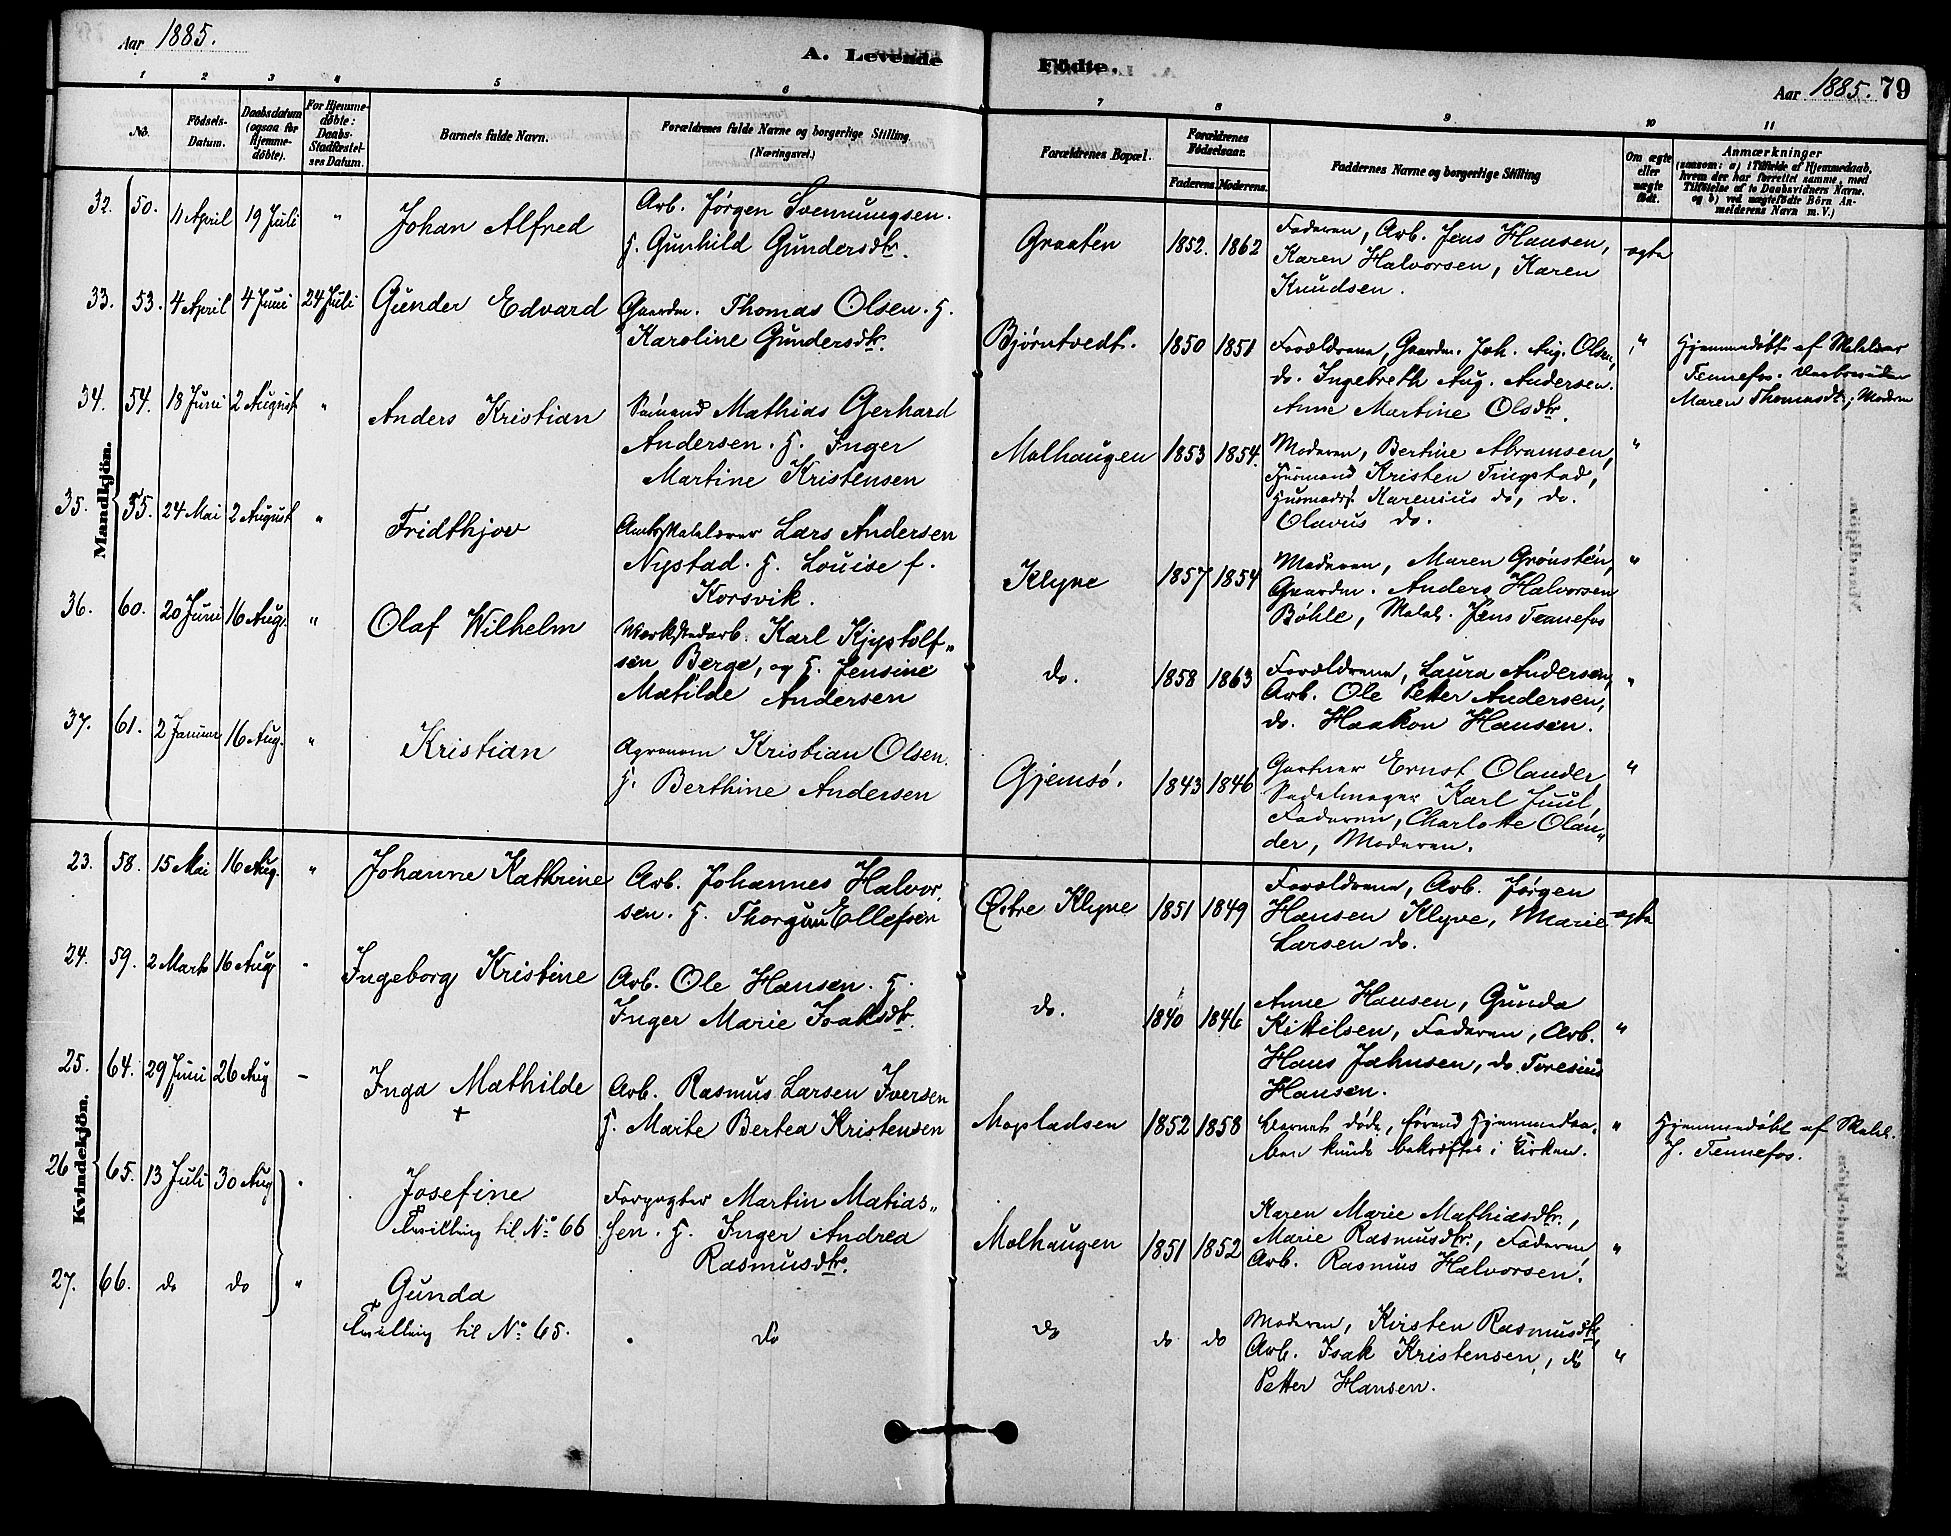 Aar 1885.
A. Levende Fødte.
Aar 1885. 79
1 2 3 4 5 6 7 8 9 10 11
No.
Fødsels-Datum.
Daabsdatum (ogsaa for Hjemme-døbte).
For Hjemme-døbte: Daabs-Stadfæstel-ses Datum.
Barnets fulde Navn.
Forældrenes fulde Navne og borgerlige Stilling. (Næringsvei.)
Forældrenes Bopæl.
Forældrenes Fødselsaar.
Faderens. Moderens.
Faddernes Navne og borgerlige Stilling
Om ægte eller uægte født.
Anmærkninger
(saasom: a) i Tilfælde af Hjemmedaab,
hvem der har forrettet samme, med
Tilføielse af to Daabsvidners Navne,
og b) ved uægtefødte Børn An-
melderens Navn m. V.)
Mandkjön.
32. 50. 11 April 19 Juli " Johan Alfred
Arb. Jørgen Svennungsen.
H. Gunhild Gundersdtr.
Graaten 1852. 1862
Faderen, Arb. Jens Hansen,
Karen Halvorsen, Karen
Knudsen.
ægte
33. 53. 4 April 4 Juni 24 Juli Gunder Edvard
Gaardm. Thomas Olsen. H.
Karoline Gundersdtr.
Bjørntvedt. 1850 1851
Forældrene, Gaardm. Joh. Aug. Olsen,
do. Ingebreth Aug. Andersen.
Anne Martine Olsdtr.
"
Hjemmedøbt af Skolelærer
Tennefos.
Maren Thomasdtr, Moderen
34. 54. 18 Juni 2 August " Anders Kristian
Sømand Mathias Gerhard
Andersen. H. Inger
Martine Kristensen
Molhaugen 1853 1854.
Moderen, Bertine Abramsen,
Husmand Kristen Tingstad,
Husmdsf. Marensius do, do.
Olavus do.
"
35. 55. 24 Mai 2 August " Fridthjov
Amtsskolelærer Lars Andersen
Nystad. H. Louise f.
Korsvik.
Klyve 1857 1854
Moderen, Maren Grønsten,
Gaardm. Anders Halvorsen
Bøhle, Skolel. Jens Tennefos
"
36. 60. 20 Juni 16 Aug. " Olaf Wilhelm
Værkstedarb. Karl Kjystolf-
sen Berge, og H. Jensine
Matilde Andersen
do. 1858 1863
Forældrene, Laura Andersen,
Arb. Ole Petter Andersen,
do. Haakon Hansen.
"
37. 61. 2 Januar 16 Aug. " Kristian
Agronom Kristian Olsen.
H. Berthine Andersen
Gjemsø. 1843 1846
Gartner Ernst Olander
Sadelmager Karl Juul,
Faderen, Charlotte Olan-
der, Moderen.
"
Kvindekjön.
23. 58. 15 Mai 16 Aug. " Johanne Kathrine
Arb. Johannes Halvor-
sen. H. Thorgun Ellefsen
Østre Klyve 1851 1849
Forældrene, Arb. Jørgen
Hansen Klyve, Marie
Larsen do.
ægte
24. 59. 2 Marts 16 Aug. " Ingeborg Kristine
Arb. Ole Hansen. H.
Inger Marie Isaksdtr.
do. 1840 1846
Anne Hansen, Gunda
Kittilsen, Faderen, Arb.
Hans Jahnsen, do. Toresius
Hansen.
"
25. 64. 29 Juni 26 Aug – Inga Mathilde
+
Arb. Rasmus Larsen Iversen
H. Marte Bertea Kristensen
Mopladsen 1852 1858
Barnet døde, førend Hjemmedaa-
ben kunde bekræftes i Kirken.
"
Hjemmedøbt af Skolel.
J. Tennefos.
26 65. 13 Juli 30 Aug " Josefine
Tvilling til No 66
Forpagter Martin Matias-
sen. H. Inger Andrea
Rasmusdtr.
Molhaugen 1851 1852
Karen Marie Mathiasdtr.,
Marie Rasmusdtr., Faderen,
Arb. Rasmus Halvorsen.
"
27. 66. do do " Gunda
Tvilling til No 65.
do
do do do
Moderen, Kirsten Rasmusdtr,
Arb. Isak Kristensen, do
Petter Hansen.
"